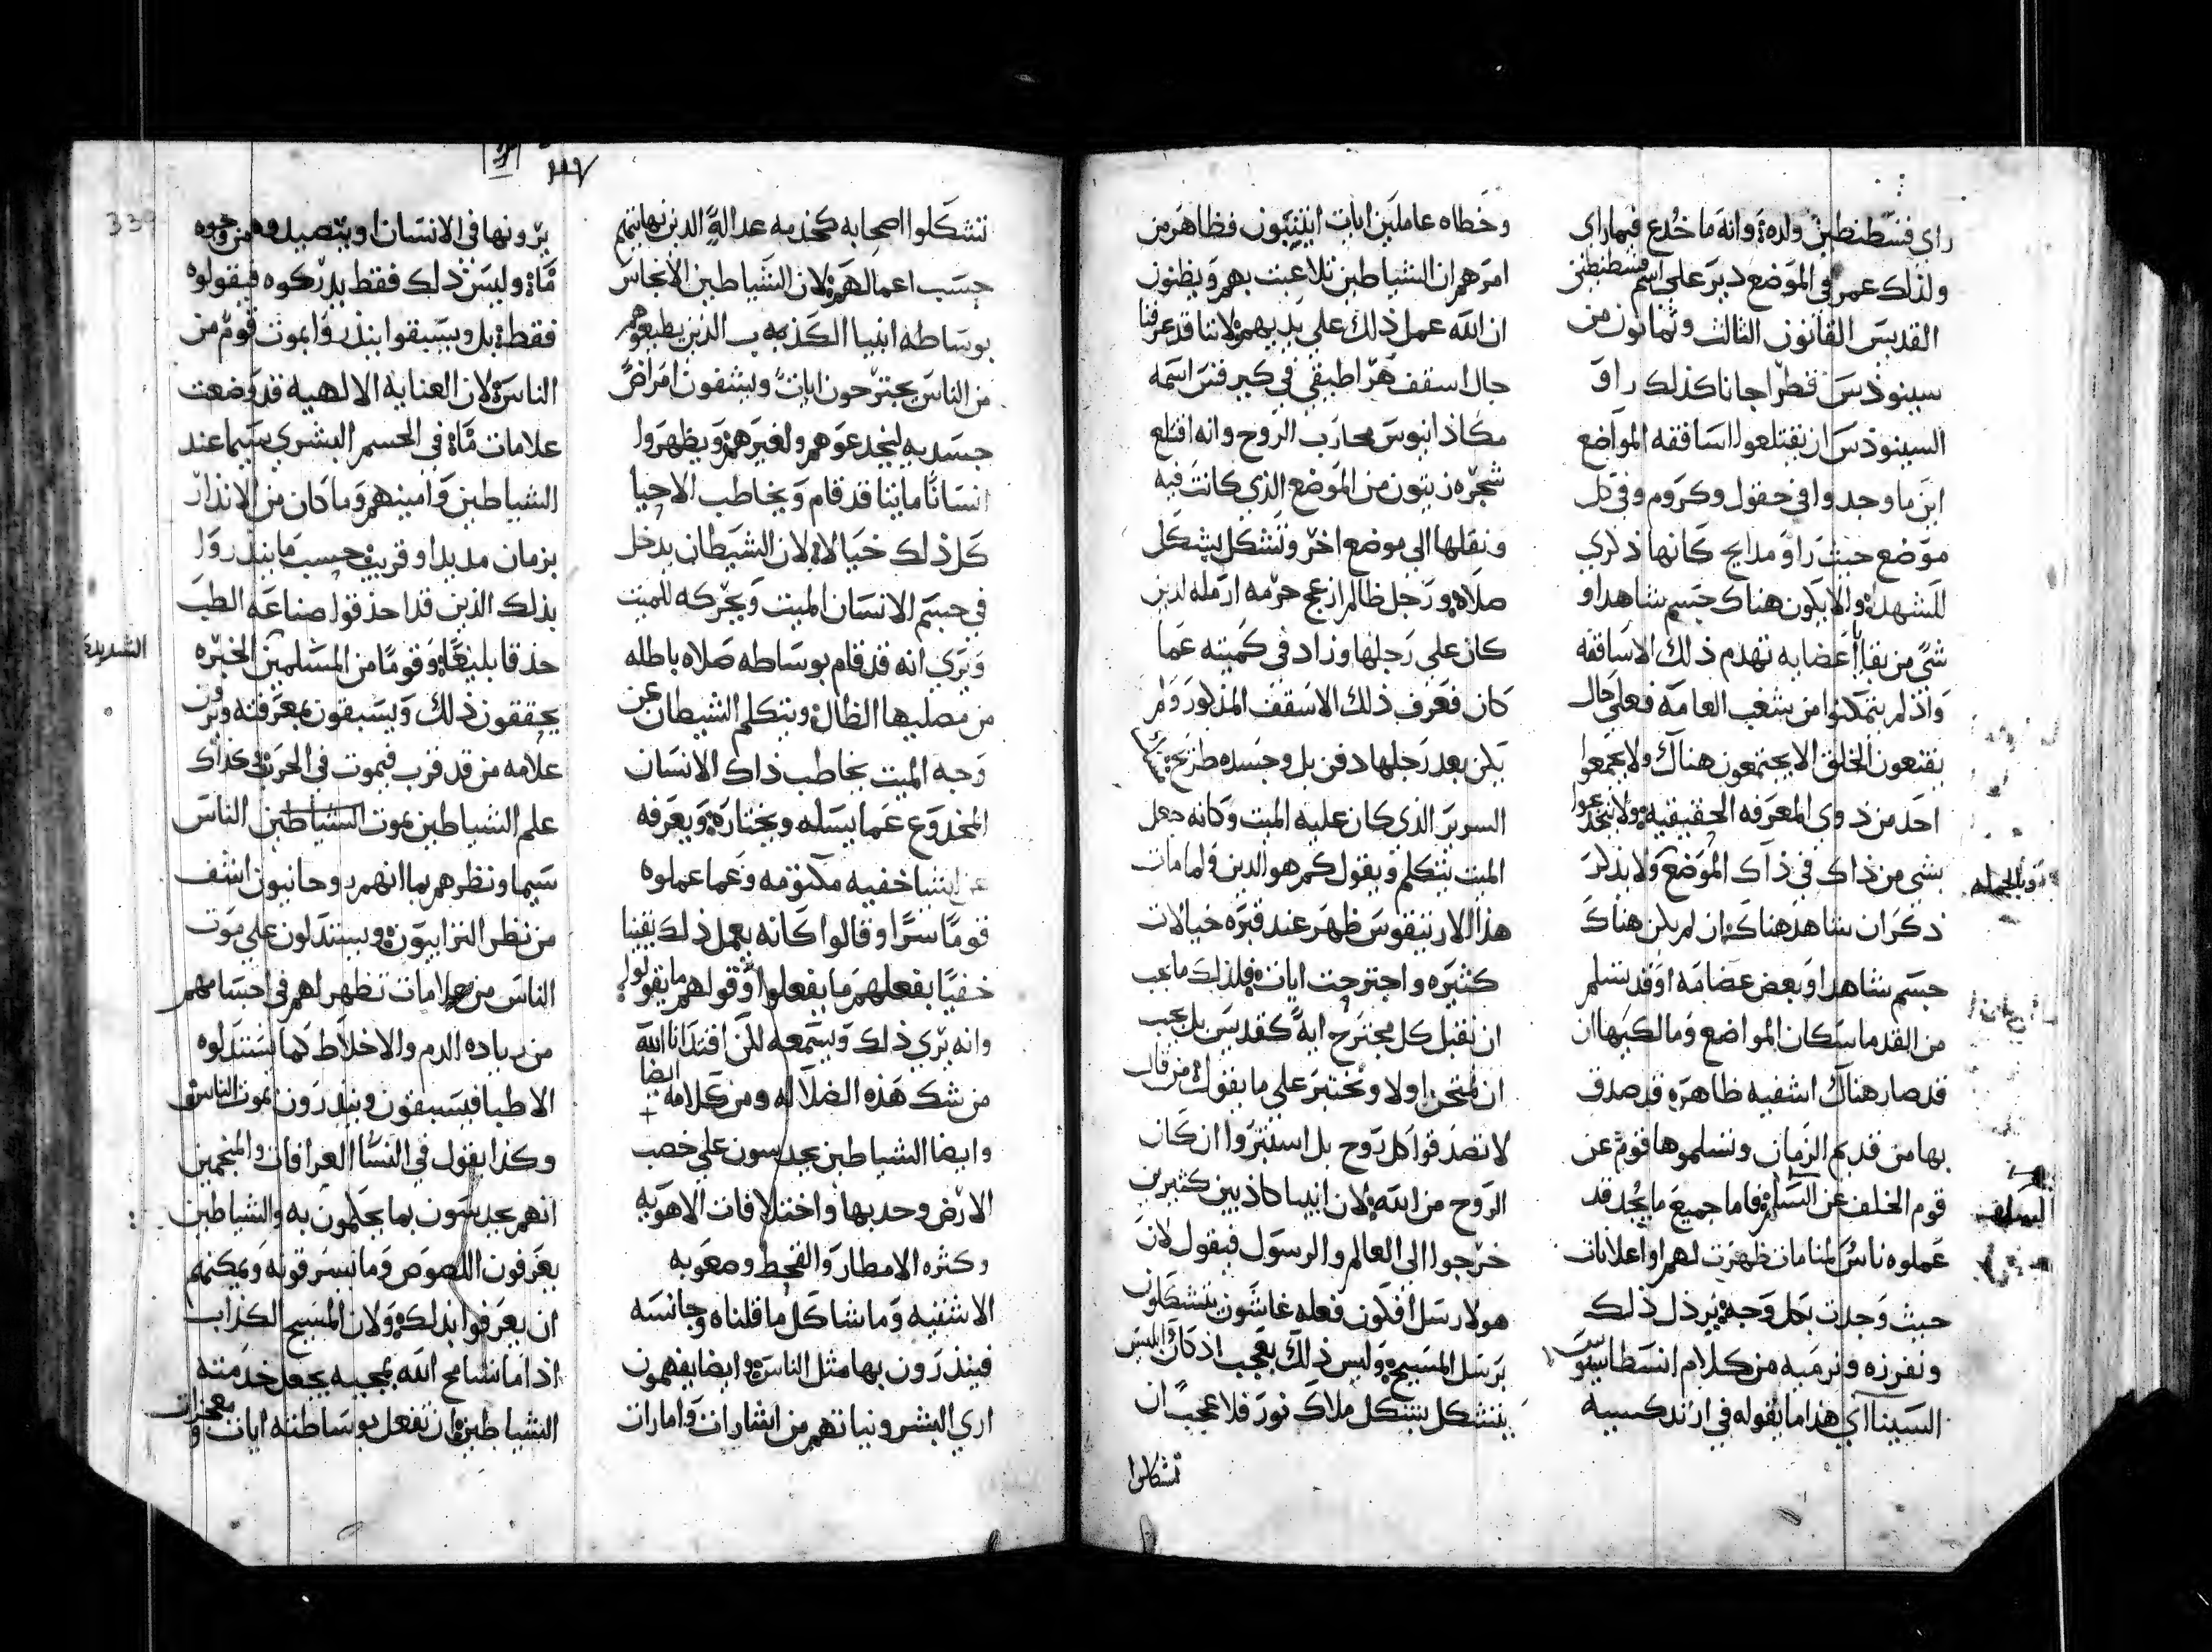 راي قسطنطين ولده وانه ما خُدع فيما راي
ولذلك عمر في الموضع دير علي اسم قسطنطين
القديس القانون الثالث وثمانون من
سينودس قطراجانا كذلك راو
السينودس ان يقتلعوا اساقفه المواضع
اين ما وجدوا في حقول وكروم وفي كل
موضع حيث راو مدايح كانها ذكري
للشهدا والا يكون هناك جسم شاهد او
شي من بقايا اعضايه تهدم ذلك الاساقفه
واذ لم يتمكنوا من شغب العامه فعلي حال
يقنعون الخلق الا يجتمعون هناك ولا يجمعوا
احد من ذوي المعرفه الحقيقيه ولا ينخدعوا
بشي من ذاك في ذاك الموضع ولا يذكر
ذكران شاهد هناك ان لم يكن هناك
جسم شاهد او بعض عضامه او قد تسلم
من القدما سكان المواضع ومالكيها ان
قد صار هناك اشفيه ظاهره قد صدق
بها من قديم الزمان وتسلموها قوم عن
قوم الخلف عن السلف فاما جميع ما يُجد قد
عملوه ناس لمنامات ظهرت لهم او اعلانات
حيث وجدت بكل وجه يرذل ذلك
ونفرزه ونرميه من كلام انسطاسيوس
السينا آي هذا ما يقوله في ارندكسيه
وبالجمله
السلف
وخطاه عاملين ايات اثنيتون فظاهر من
امرهم ان الشياطين تلاعبت بهم ويظنون
ان الله عمل ذلك علي يديهم لاننا قد عرفنا
حال اسقف هراطيقي في كبرفس اسمه
مكاذانيوس محارب الروح وانه اقتلع
شجره زيتون من الموضع الذي كانت فيه
ونقلها الي موضع اخر وتشكل بشكل
صلاه ورجل ظالم ازعج حرمه ارمله لدين
كان علي رجلها وزاد في كميته عما
كان فعرف ذلك الاسقف المذكور ولم
يكن بعد رجلها دفن بل وجسده طريح
السرير الذي كان عليه الميت وكانه جعل
الميت يتكلم ويقول كم هو الدين ولما مات
هذا الاراتيقوس ظهر عند قبره خيالات
كثيره واجترحت ايات فلذلك ما يجب
ان نقبل كل مجترح ايه كقديس بل يجب
ان نمتحن اولا ونختبر علي ما يقوله من قال
لا تصدقوا كل روح بل استبروا ان كان
الروح من الله لان انبيا كاذبين كثيرين
خرجوا الي العالم والرسول فيقول لان
هولا رسل افكون فعله غاشون يتشكلون
برسل المسيح وليس ذلك بعجب اذ كان ابليس
يتشكل بشكل ملاك نور فلا عجب ان
تشكلوا
٣٣٧
339
تشكلوا اصحابه كخدمه عداله الذين نهايتهم
حسب اعمالهم لان الشياطين الانجاس
بوساطه انبيا الكذبه الذين يطيعوهم
من الناس يجترحون ايات ويشفون امراض
جسديه ليخدعوهم ولغيرهم ويظهروا
انسانا مايتا قد قام ويخاطب الاحيا
كل ذلك خيالا لان الشيطان يدخل
في جسم الانسان الميت ويحركه للميت
ويري انه قد قام بوساطه صلاه باطله
من مصليها الظال ويتكلم الشيطان عن
وجه الميت يخاطب ذاك الانسان
المخدوع عما يسله ويختاره ويعرفه
عن اشيا خفيه مكتومه وعما عملوه
قوما سرا وقالوا كانه يعمل ذلك يقينا
خفيا بفعلهم ما يفعلوا وقولهم ما يقولوا
وانه يري ذلك ويسمعه لكن افتدانا الله
من شك هذه الضلاله ومن كلامه ايضا
وايضا الشياطين يحدسون علي خصب
الارض وحدبها واختلافات الاهويه
وكثره الامطار والقحط وصعوبه
الاشفيه وما شاكل ما قلناه وجانسه
فينذرون بها مثل الناس وايضا يفهمون
اري البشر ونياتهم من اشارات وامارات
يرونها في الانسان او يتصيدوه من وجوه
مّا وليس ذلك فقط يدركوه فيقولوه
فقط بل ويسبقوا ينذروا بموت قوم من
الناس لان العنايه الالهيه قد وضعت
علامات مّا في الجسم البشري سيما عند
الشياطين وامينهم وما كان من الانذار
بزمان مديد او قريب حسب ما ينذروا
بذلك الذين قد احذقوا صناعه الطب
حذقا بليغا وقوما من المسلمين الخبره
يحققون ذلك ويسبقون بمعرفته ويرون
علامه من قد قرب فيموت في الحرب وكذاك
علم الشياطين بموت الناس
سيما ونظرهم بما انهم روحانيون اشف
من نظر الترابيون ويستدلون علي موت
الناس من علامات تظهر لهم في اجسامهم
من زياده الدم والاخلاط كما يستدلوه
الاطبا فيسبقون وينذرون بموت الناس
وكذا يقول في النسا العرافات والمنجمين
انهم يحدسون بما يحكمون به والشياطين
يعرفون اللصوص وما تسرقونه ويمكنهم
ان يعرفوا بذلك ولان المسيح الكذاب
اذا ما سامح الله بمجيه يجعل خدمته
الشياطين ان تفعل بوساطته ايات ومعجزات
الشديده